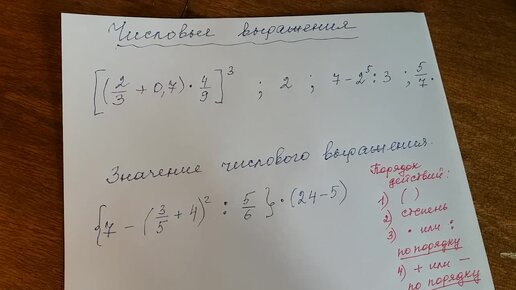 Числовые выражения
[(2/3 + 0,7) · 4/9]³ ; 2 ; 7 - 2⁵ : 3 ; 5/7.
Значение числового выражения.
{7 - (3/5 + 4)² : 5/6} · (24 - 5)
Порядок
действий:
1) ( )
2) степень
3) · или :
по порядку
4) + или -
по порядку